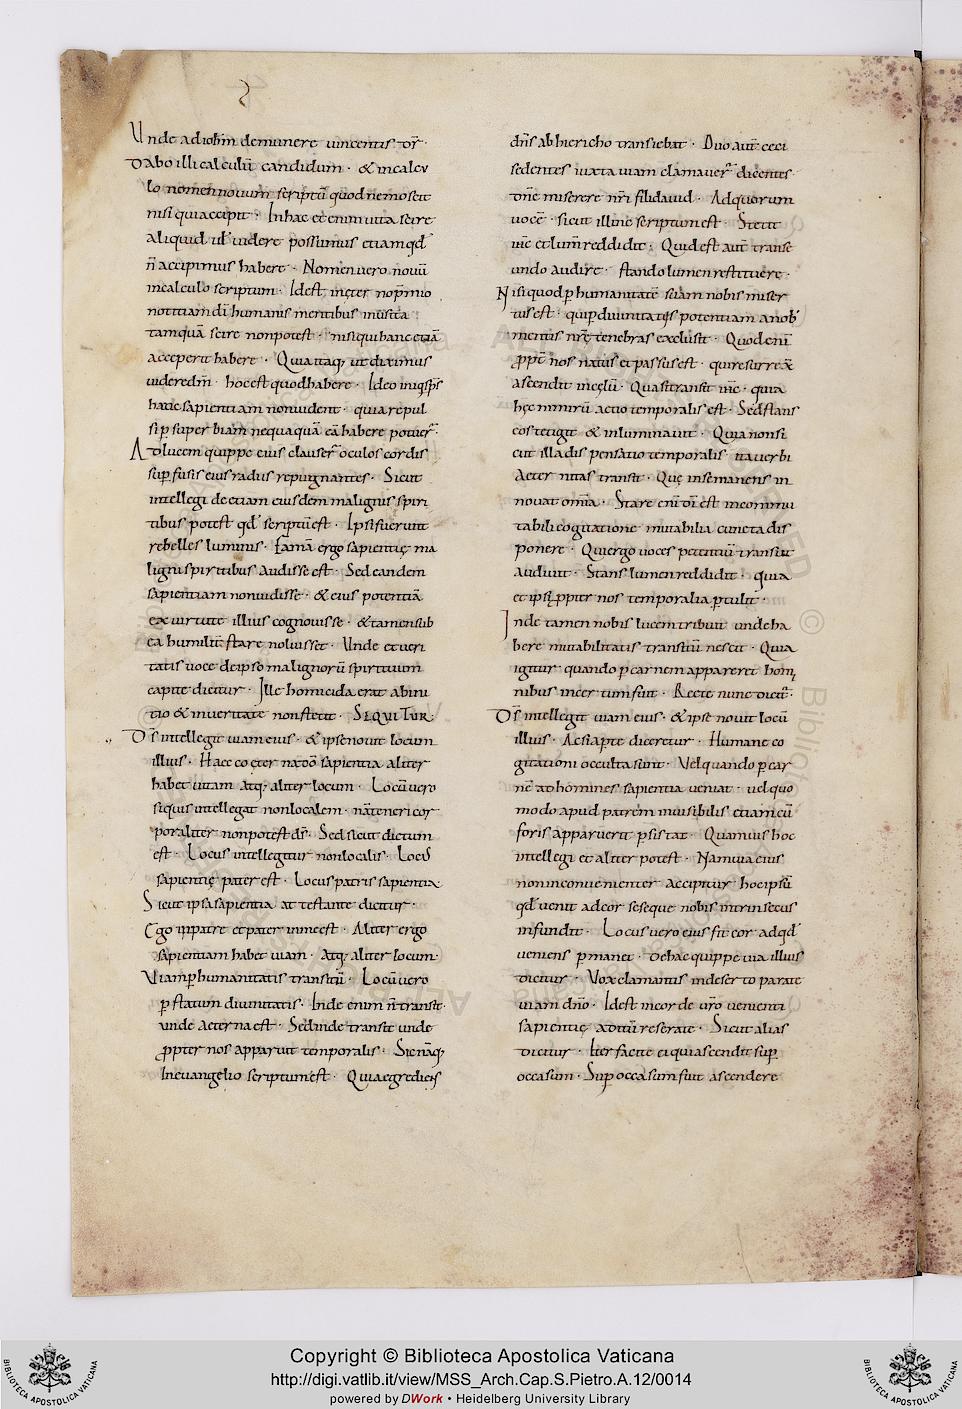 Unde ad ioħm de munere vincentis dr̄.
Dabo illi calculū candidum. & in calcu
lo nomen novum scriptū quod nemo scit
nisi qui accipit. In hac etenim vita scire
aliquid ul̄ videre possumus etiam qd̄
n̄ accipimus habere. Nomen vero novū
in calculo scriptum. Id est in ęter no p̄mio
notitiam dī humanis mentibus in usita
tam quā scire non potest. nisi qui hanc etiā
acceperit habere. Quia itaq; ut diximus
videre dm̄. hoc est quod habere. Ideo iniq; sp̄s
hanc sapientiam non vident. quia repul
si p̱ superbiam nequaquā eā habere potuer̄.
Ad lucem quippe eius clauser̄ oculos cordis
sup̱fusis eius radiis repugnantes. Sicut
intellegi de etiam eiusdem malignis spiri
tibus potest qd̄ scriptū est. Ipsi fuerunt
rebelles luminis. Famā ergo sapientię ma
ligni spiritibus audisse est. Sed eandem
sapientiam non vidisse. & eius potentiā
ex virtute illius cognovisse. & tamen sub
ea humilit̄ stare noluisse. Unde et veri
tatis voce de ipso malignorū spirituum
capite dicitur. Ille homicida erat ab ini
tio & in veritate non stetit. SEQUITUR.
Ds̄ intellegit viam eius. & ipse novit locum
illius. Haec coęter na dō sapientia aliter
habet vitam atq; aliter locum. Locū vero
si quis intellegat non localem. nā teneri cor
poraliter non potest ds̄. Sed sicut dictum
est. Locus intellegitur non localis. Locus
sapientię pater est. Locus patris sapientia
Sicut ipsa sapientia at testante dicitur.
Ego in patre et pater in me est. Aliter ergo
sapientiam habet viam. Atq; aliter locum.
Viam p̱ humanitatis transitū. Locū vero
p̱ statum divinitatis. Inde enim n̄ transit.
unde aeterna est. Sed inde transit unde
ꝓpter nos apparuit temporalis. Sic nāq;
In evangelio scriptum est. Quia egrediens
dn̄s ab hiericho transiebat. Duo aut̄ ceci
sedentes iuxta viam clamaver̄ dicentes
dn̄e miserere nr̄i fili david. Ad quorum
vocē. sicut illinc scriptum est. Stetit
ih̄c et lum̄ reddidit. Quid est aut̄ transe
undo audire. stando lumen restituere.
Nisi quod p̱ humanitatē suam nobis miser
tus est. qui p̱ divinitatis potentiam a nob̄
mentis nr̄ę tenebras exclusit. Quod enī
ꝓpt̄ nos natus et passus est. qui resurrex̄
ascendit in cęlū. Quasi transit ih̄c. quia
hęc nimirū actio temporalis est. Sed stans
eos tetigit & inluminavit. Quia non si
cut illa dispensatio temporalis ita verbi
aeternitas transit. Quę in se manens in
novat om̄ia. Stare enī dī est incommu
tabili cogitatione mutabilia cuncta dis
ponere. Qui ergo voces petentiū transiit
audivit. Stans lumen reddidit. quia
etsi ꝓpter nos temporalia p̱tulit.
Inde tamen nobis lucem tribuit unde ha
bere mutabilitatis transitū nescit. Quia
igitur quando p̱ carnem appareret homi
nibus incertum fuit. Recte nunc dicit̄.
Ds̄ intellegit viam eius. & ipse novit locū
illius. Ac si aperte diceretur. Humane co
gitationi occulta sunt. Vel quando p̱ car
nē ad homines sapientia veniat. vel quo
modo apud patrem invisibilis etiam cū
foris apparuerit p̱sistat. Quamvis hoc
intellegi et aliter potest. Nam via eius
non inconvenienter accipitur hoc ipsū
qd̄ venit ad cor seseque nobis intrinsecus
infundit. Locus vero eius fit cor ad qd̄
veniens p̱manet. De hac quippe via illius
dicitur. Vox clamantis in deserto parate
viam dn̄o. Id est in cor de vr̄o venienti
sapientię aditū reserate. Sicut alias
dicitur. Iter facite ei qui ascendit sup̱
occasum. Sup̱ occasum fuit ascendere
Copyright © Biblioteca Apostolica Vaticana
http://digi.vatlib.it/view/MSS_Arch.Cap.S.Pietro.A.12/0014
powered by DWork • Heidelberg University Library
BIBLIOTECA APOSTOLICA VATICANA
BIBLIOTECA APOSTOLICA VATICANA